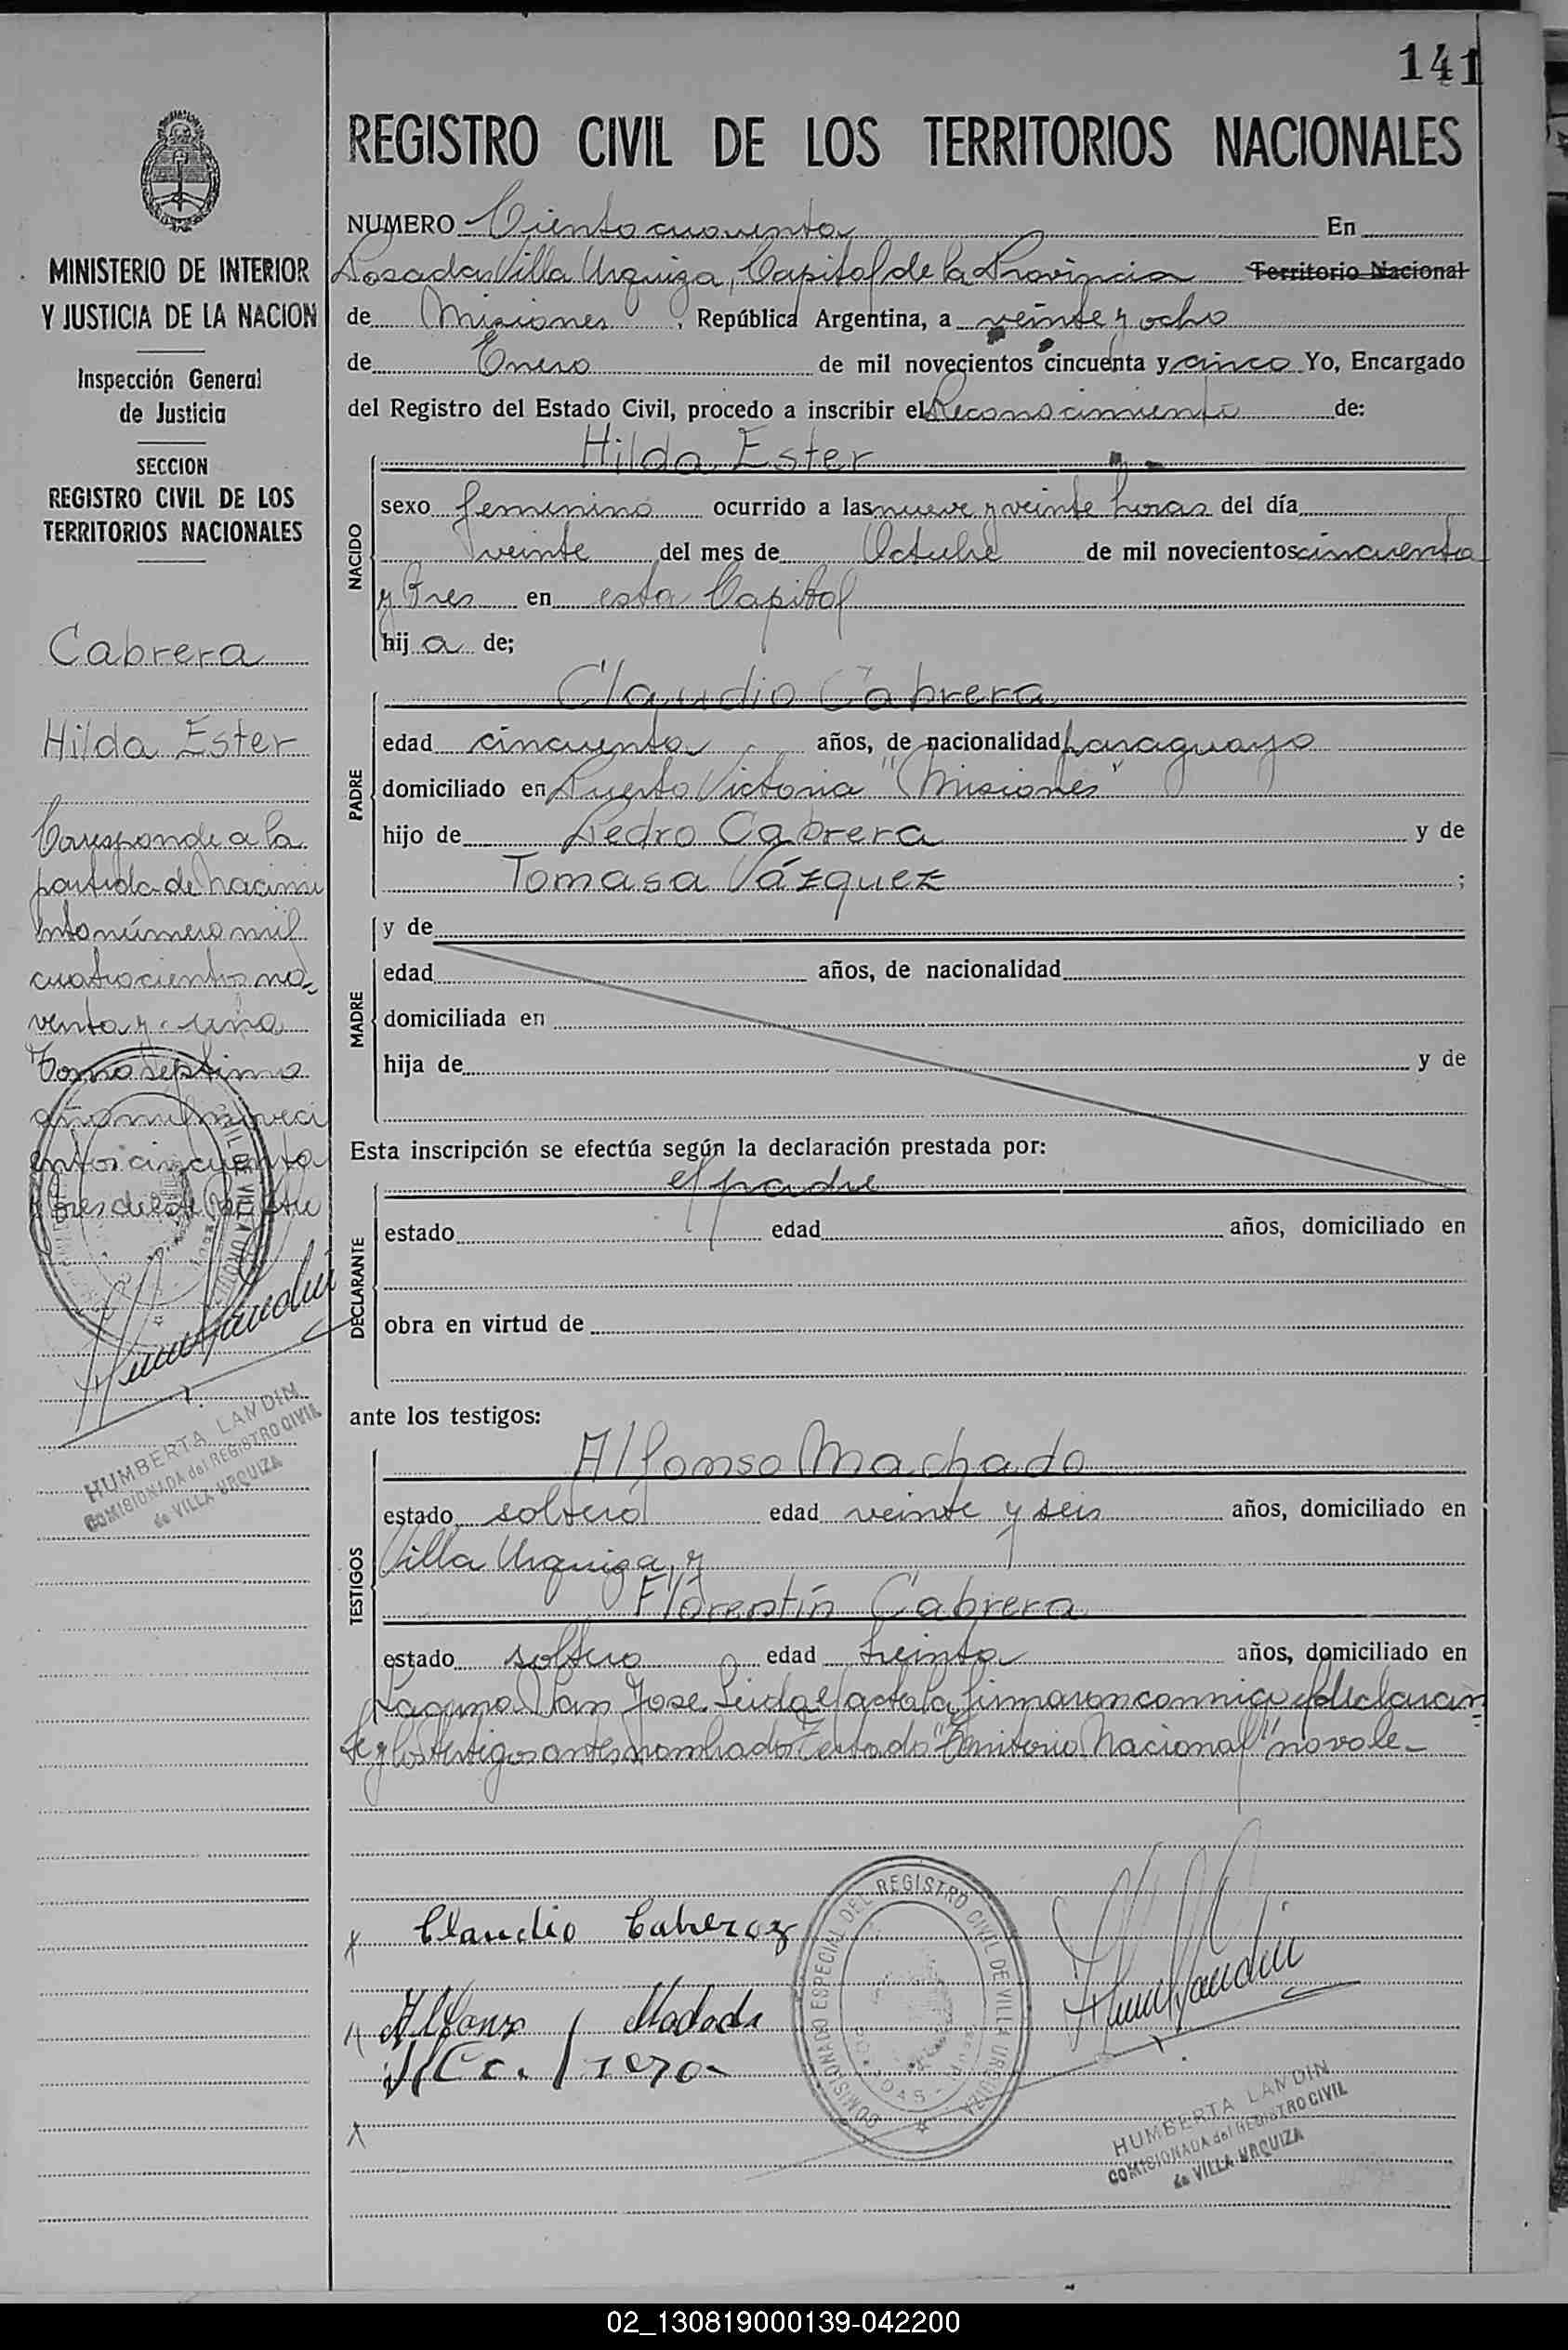 141
REGISTRO CIVIL DE LOS TERRITORIOS NACIONALES
MINISTERIO DE INTERIOR
Y JUSTICIA DE LA NACION
Inspección General
de Justicia
SECCION
REGISTRO CIVIL DE LOS
TERRITORIOS NACIONALES
Cabrera
Hilda Ester
Corresponde a la
partida de nacimi
ento número mil
cuatrocientos no-
venta y uno
Tomo séptimo
año mil noveci
entos cincuenta
HUMBERTA LANDIN
COMISIONADA del REGISTRO CIVIL
de VILLA URQUIZA
NUMERO Ciento cuarenta En
Posadas Villa Urquiza, Capital de la Provincia Territorio Nacional
de Misiones, República Argentina, a veinte y ocho
de Enero de mil novecientos cincuenta y cinco Yo, Encargado
del Registro del Estado Civil, procedo a inscribir el Reconocimiento de:
NACIDO
Hilda Ester
sexo femenino ocurrido a las nueve y veinte horas del día
veinte del mes de Octubre de mil novecientos cincuenta
y tres en esta Capital
hija de;
PADRE
Claudio Cabrera
edad cincuenta años, de nacionalidad paraguayo
domiciliado en Puerto Victoria "Misiones"
hijo de Pedro Cabrera y de
Tomasa Vázquez ;
MADRE
y de
edad años, de nacionalidad
domiciliada en
hija de y de
Esta inscripción se efectúa según la declaración prestada por:
DECLARANTE
el padre
estado edad años, domiciliado en
obra en virtud de
ante los testigos:
TESTIGOS
Alfonso Machado
estado soltero edad veinte y seis años, domiciliado en
Villa Urquiza, y
Florentín Cabrera
estado soltero edad treinta años, domiciliado en
Laguna San José. Leida el acta la firmaron conmigo el declaran-
te y los testigos antes nombrados Testado "Territorio Nacional" no vale-
Claudio Cabrera
COMISIONADO ESPECIAL DEL REGISTRO CIVIL DE VILLA URQUIZA
HUMBERTA LANDIN
COMISIONADA del REGISTRO CIVIL
de VILLA URQUIZA
02_130819000139-042200